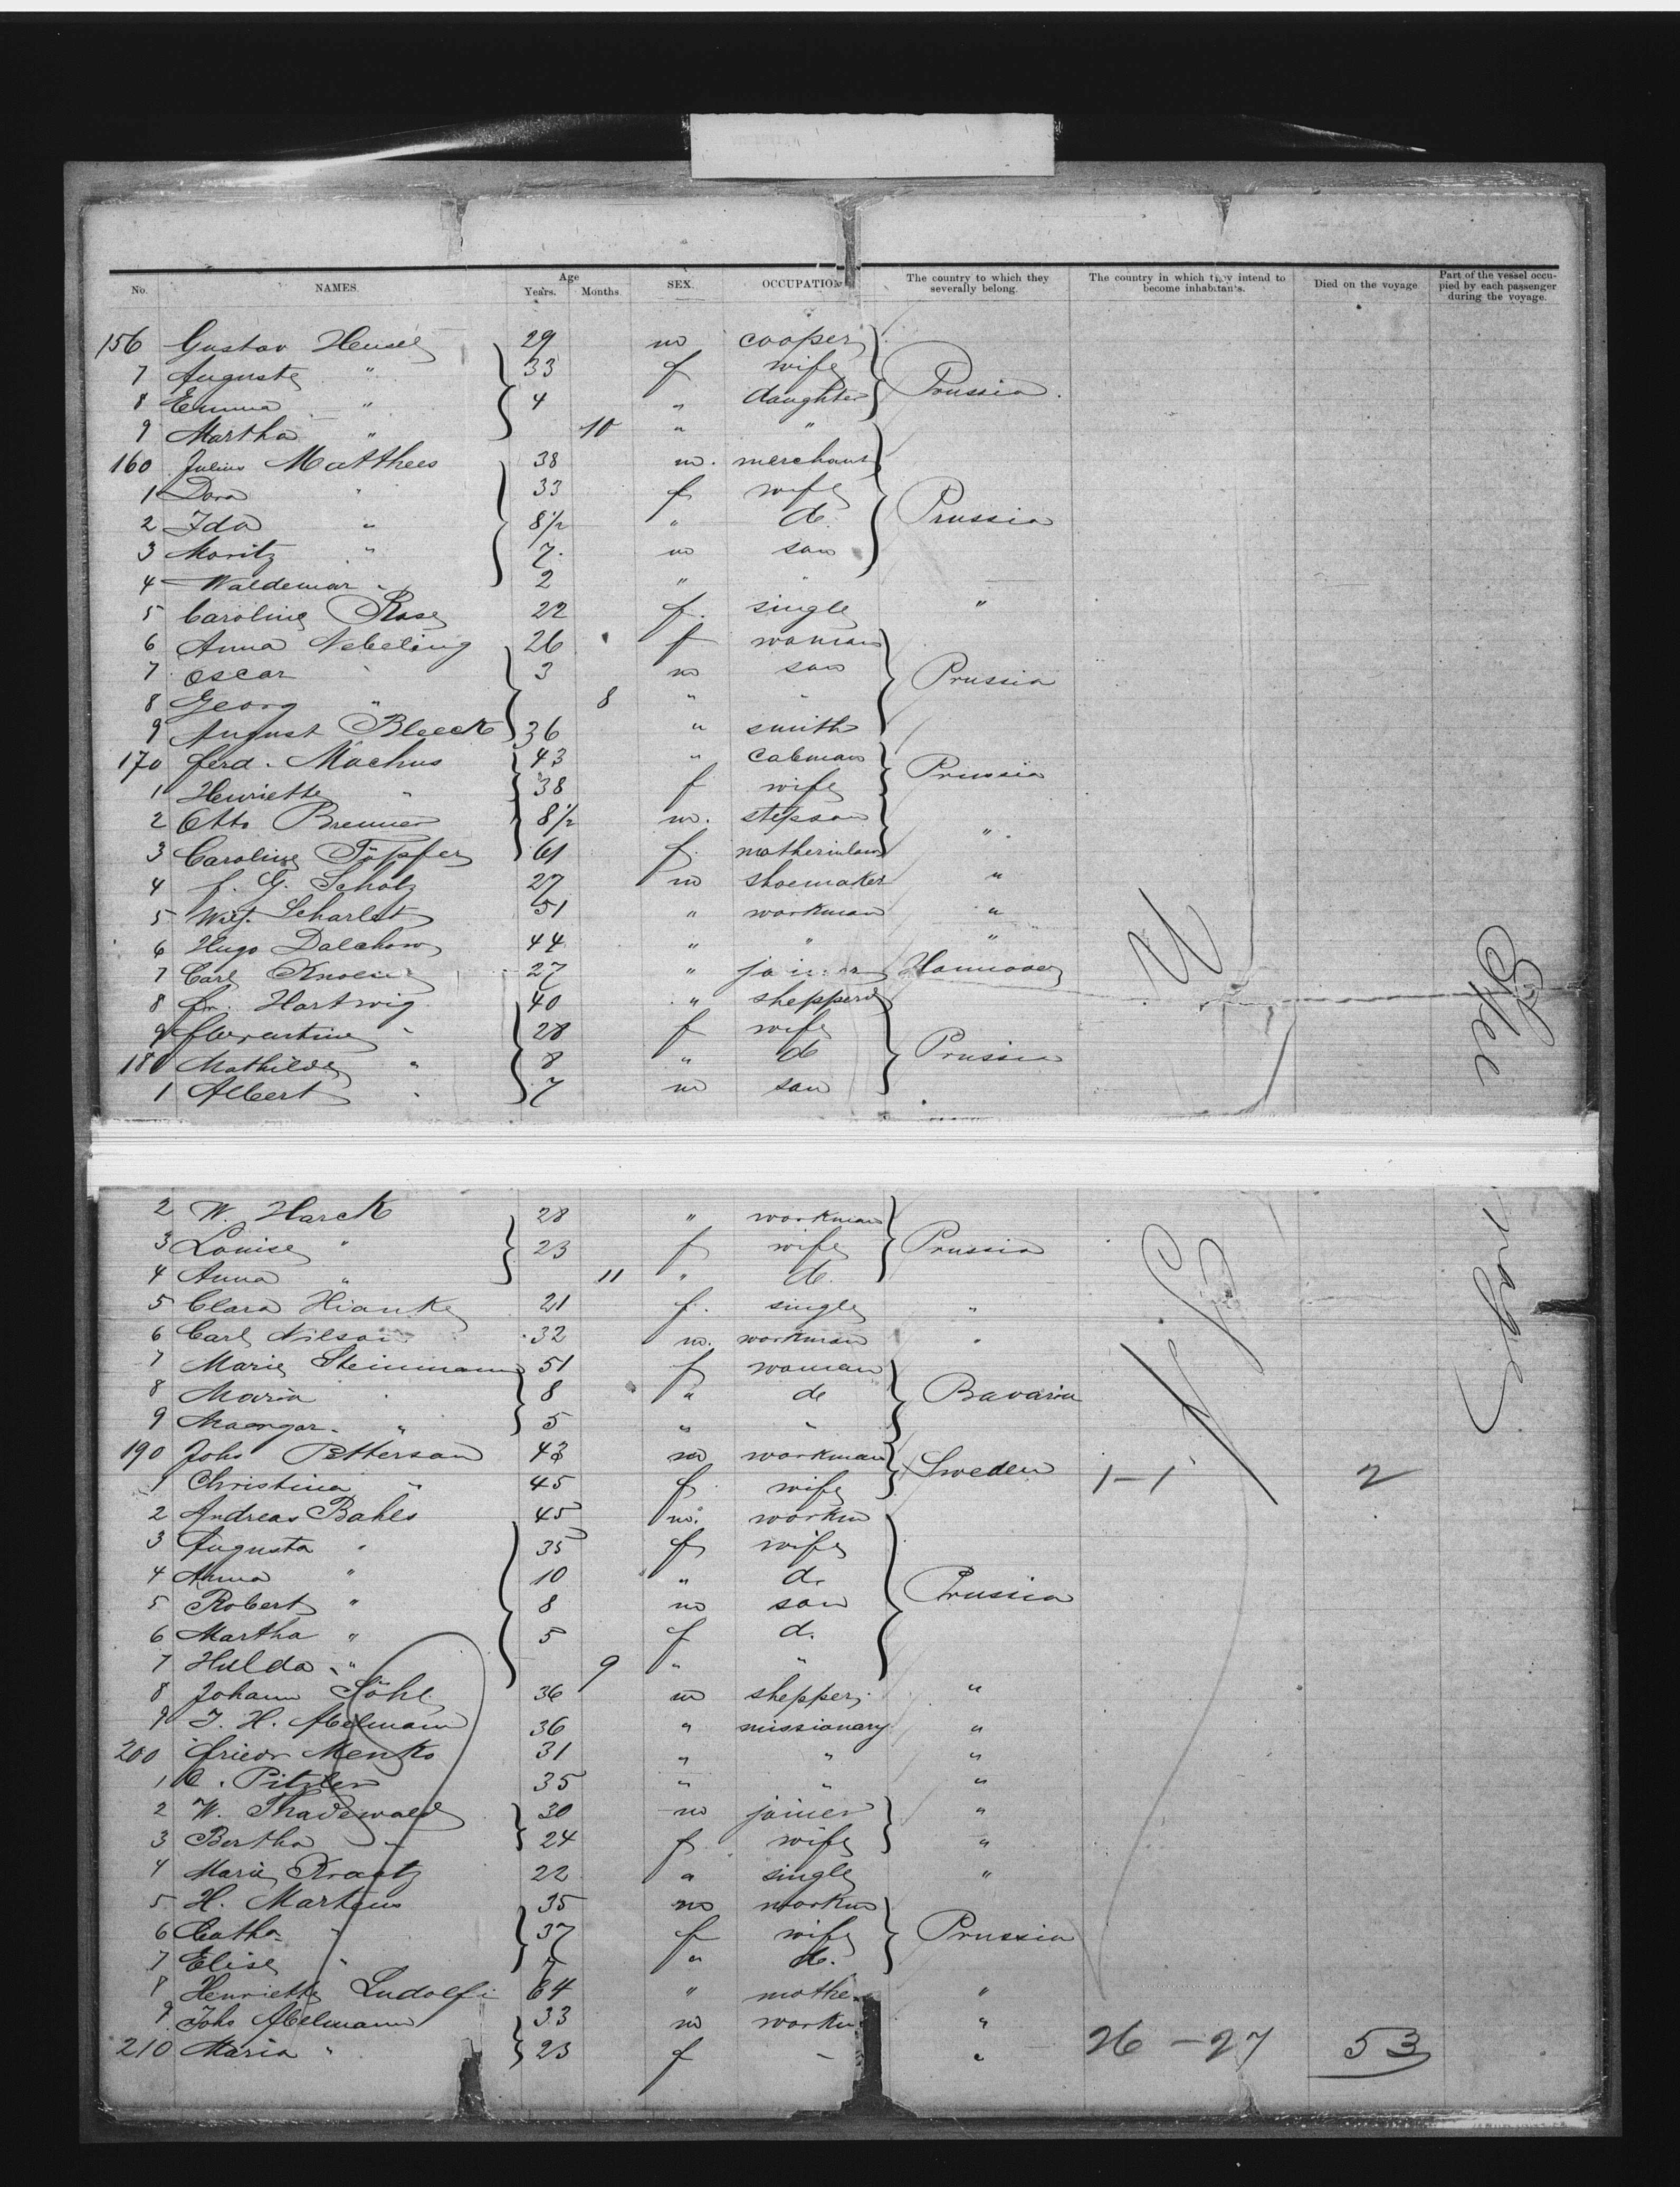 No. NAMES. Age Years. Months. SEX. OCCUPATION The country to which they severally belong. The country in which they intend to become inhabitants. Died on the voyage Part of the vessel occupied by each passenger during the voyage.
156 Gustav 29 m cooper
7 Auguste " 33 f wife Prussia.
8 Emma " 4 " daughter
9 Martha " 10 " "
160 Julius Matthees 38 m. merchant
1 Dora " 33 f wife
2 Ida " 8 1/2 " d. Prussia
3 Moritz " 7. m son
4 Waldemar " 2 " "
5 Caroline Rose 22 f. single "
6 Anna Nebeling 26 f woman
7 Oscar " 3 m son Prussia
8 Georg " 8 " "
9 August Bleeck 36 " smith
170 Ferd. Machus 43 " cabman
1 Henriette " 38 f wife Prussia
2 Otto Brenner 8 1/2 m. stepson
3 Caroline Töpfer 61 f. motherinlaw "
4 F. G. Scholz 27 m shoemaker "
5 51 " workman "
6 Hugo Dalchow 44 " " "
7 Carl 27 " joiner Hannover
8 Fr. Hartwig 40 " shepperd
9 " 28 f wife
180 Mathilde " 8 " d Prussia
1 Albert " 7 m son
2 W. Harck 28 " workman
3 Louise " 23 f wife Prussia
4 Anna " 11 " d.
5 Clara Hianke 21 f. single "
6 Carl Nilson 32 m. workman "
7 Marie Steinmann 51 f woman
8 Maria " 8 " d Bavaria
9 " 5 " "
190 Johs Petterson 43 m workman Sweden 1-1 2
1 Christina " 45 f wife
2 Andreas Bahls 45 m. workm
3 Augusta " 35 f wife
4 Anna " 10 " d. Prussia
5 Robert " 8 m son
6 Martha " 5 f d.
7 Hulda " 9 " "
8 Johann Söhl 36 m shepper "
9 J. H. Abelmann 36 " missionary "
200 Friedr Menke 31 " " "
1 C. Pitzler 35 " " "
2 W. Thadewald 30 m joiner "
3 Bertha " 24 f wife "
4 Marie Kraatz 22 " single "
5 H. Martens 35 m workm
6 Catha " 37 f wife Prussia
7 Elise " 7 " d.
8 Henriette Ludolfi 64 " mother "
9 Johs Abelmann 33 m workm "
210 Maria " 23 f - " 26-27 53